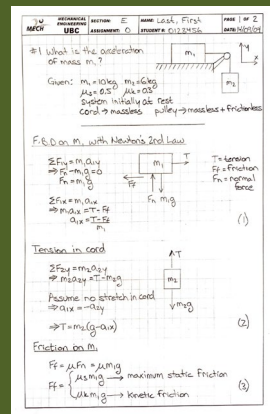 MECH
MECHANICAL ENGINEERING
UBC
SECTION: E
NAME: Last, First
PAGE 1 OF 2
ASSIGNMENT: 0
STUDENT #: 0123456
#1 What is the acceleration
of mass m₁?
m₁
y
x
m₂
Given: m₁=10kg m₂=6kg
μs=0.5 μk=0.3
System initially at rest
cord → massless pulley → massless + frictionless
F.B.D on m₁ with Newton's 2nd Law
ΣF₁y=m₁a₁y
⇒Fn-m₁g=0
Fn=m₁g
m₁
T
Ff
Fn m₁g
T=tension
Ff=friction
Fn=normal
force
ΣF₁x=m₁a₁x
⇒m₁a₁x=T-Ff
a₁x=T-Ff
m₁
(1)
Tension in cord
ΣF₂y=m₂a₂y
⇒m₂a₂y=T-m₂g
T
m₂
m₂g
Assume no stretch in cord
⇒a₁x=-a₂y
⇒T=m₂(g-a₁x)
(2)
Friction on m₁
Ff=μFn=μm₁g
Ff={μsm₁g → maximum static friction
μkm₁g → kinetic friction
(3)